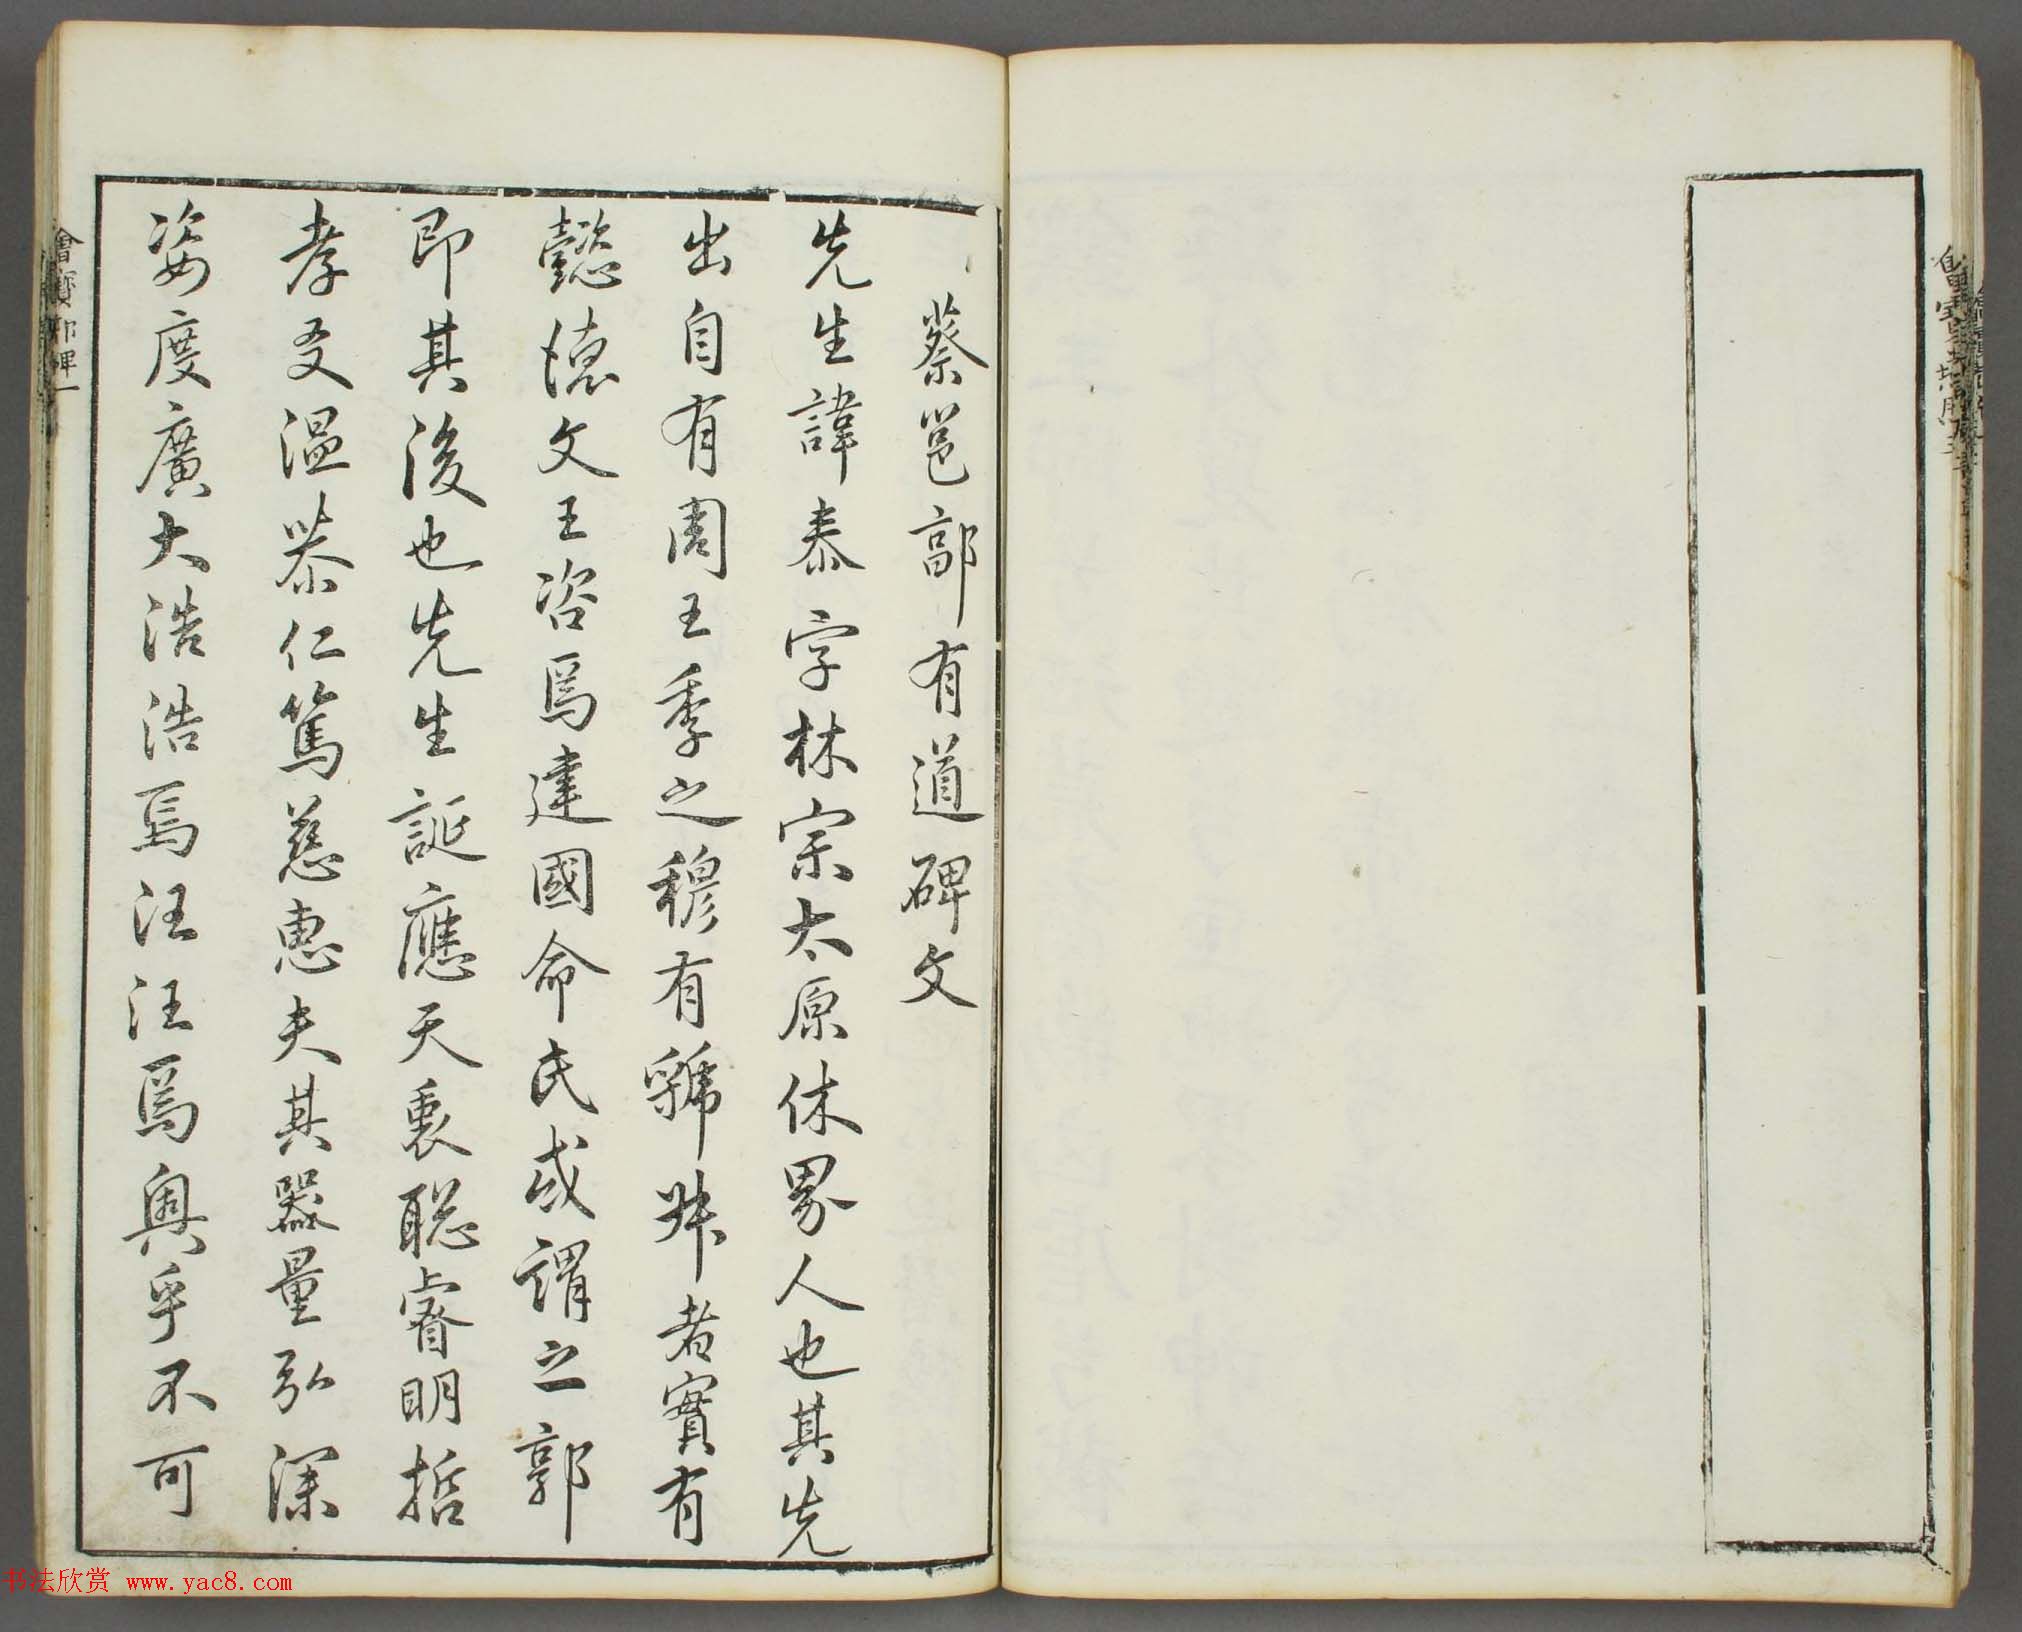 蔡邕郭有道碑文
先生諱泰字林宗太原休界人也其先
出自有周王季之穆有虢叔者實有
懿德文王咨焉建國命氏或謂之郭
即其後也先生誕應天衷聡睿明哲
孝友温恭仁篤慈惠夫其器量弘深
姿度廣大浩浩焉汪汪焉奥乎不可
書法欣赏 www.yac8.com